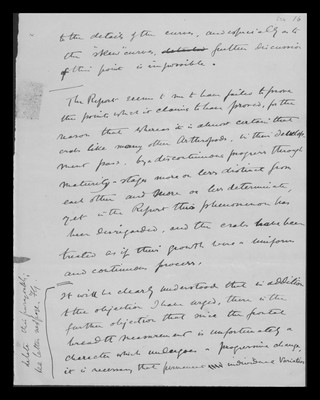 to the details of the curves, and especially as to
the "skew" curves, further discussion
of this point is impossible.
The Report seems to me to have failed to prove
the points which it claims to have proved, for the
reason that whereas it is almost certain that
crabs like many other Arthropods, in their develop-
ment pass by a discontinuous progress through
maturity-stages more or less distinct from
each other and more or less determinate,
yet in the Report this phenomenon has
been disregarded, and the crabs have been
treated as if their growth was a uniform
and continuous process.
It will be clearly understood that in addition
to the objection I have urged, there is the
further objection that since the frontal
breadth measurement is unfortunately a
character which undergoes a progressive change,
it is necessary that permanent individual variations
delete this paragraph,
see letter